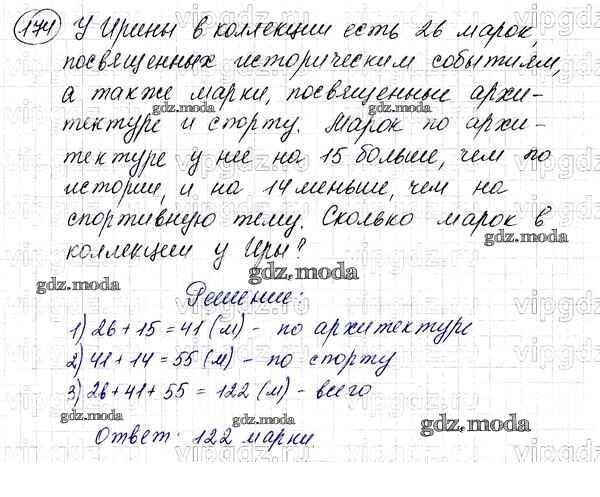 174 У Ирины в коллекции есть 26 марок,
посвященных историческим событиям,
а также марки, посвященные архи-
тектуре и спорту. Марок по архи-
тектуре у нее на 15 больше, чем по
истории, и на 14 меньше, чем на
спортивную тему. Сколько марок в
коллекции у Иры?
Решение:
1) 26 + 15 = 41 (м) - по архитектуре
2) 41 + 14 = 55 (м) - по спорту
3) 26 + 41 + 55 = 122 (м) - всего
Ответ: 122 марки.
gdz.moda
vipgdz.ru